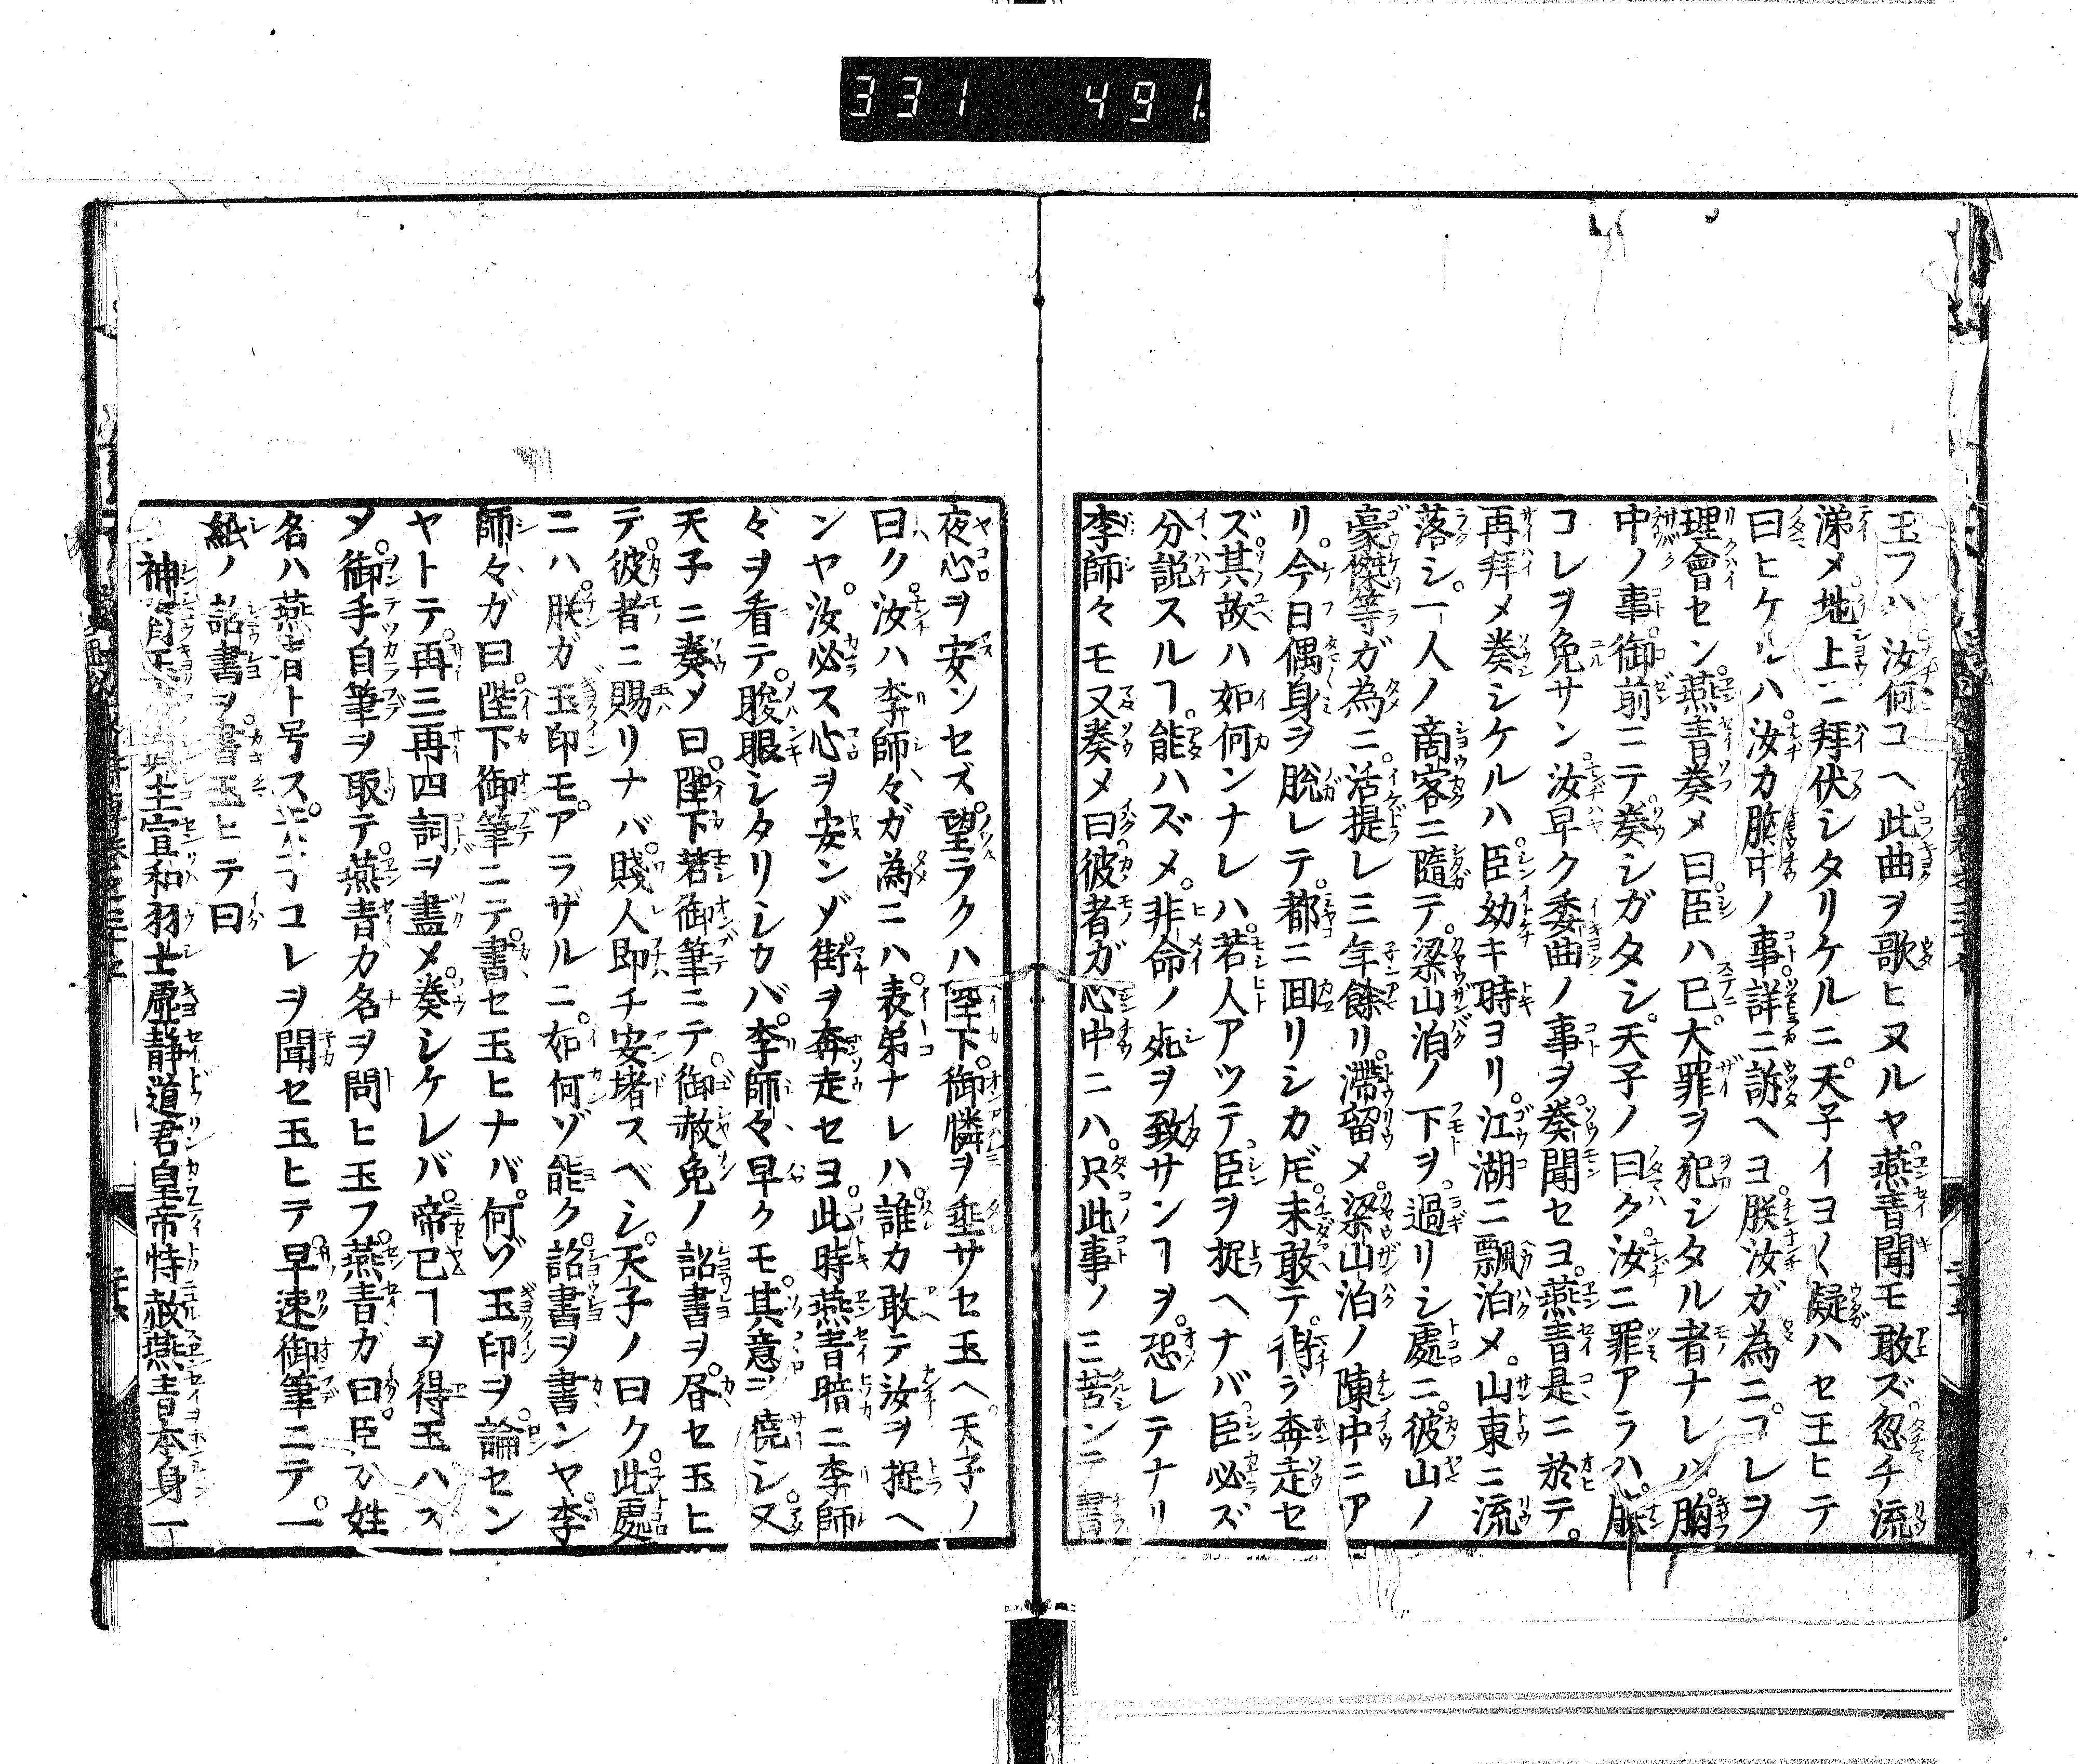 331 491
玉フハ汝何コヘ此曲ヲ歌ヒヌルヤ。燕青聞モ敢ズ忽チ流
涕メ地上ニ拜伏シタリケルニ天子イヨ〱疑ハセ玉ヒテ
曰ヒケルハ。汝カ胸中ノ事詳ニ訴ヘヨ朕汝ガ為ニコレヲ
理會セン。燕青奏メ曰。臣ハ已大罪ヲ犯シタル者ナレハ。胸
中ノ事御前ニテ奏シガタシ。天子ノ曰ク。汝ニ罪アラハ。朕
コレヲ免サン。汝早ク委曲ノ事ヲ奏聞セヨ。燕青是ニ於テ。
再拜メ奏シケルハ。臣幼キ時ヨリ。江湖ニ飄泊メ。山東ニ流
落シ。一人ノ商客ニ隨テ。梁山泊ノ下ヲ過リシ處ニ。彼山ノ
豪傑等ガ為ニ。活提レ三年餘リ。滯留メ。梁山泊ノ陳中ニア
リ。今日偶身ヲ脱レテ。都ニ回リシカ𪜈。未敢テ。街ヲ奔走セ
ズ。其故ハ如何ンナレハ。若人アツテ。臣ヲ捉ヘナバ。臣必ズ
分説スルヿ能ハズメ。非命ノ死ヲ致サンヿヲ。恐レテナリ
李師々モ又奏メ曰。彼者ガ心中ニハ。只此事ノミ苦ンニ書
夜心ヲ安ンセズ。望ラクハ陛下。御憐ヲ垂サセ玉ヘ。天子ノ
曰ク。汝ハ李師々ガ為ニハ。表弟ナレハ誰カ敢テ汝ヲ捉ヘ
ンヤ。汝必ス心ヲ安ンゾ。街ヲ奔走セヨ。此時燕青暗ニ李師
々ヲ看テ。睃眼シタリシカバ。李師々早クモ。其意ヲ曉シ。又
天子ニ奏メ曰。陛下若御筆ニテ。御赦免ノ詔書ヲ。書セ玉ヒ
テ。彼者ニ賜リナバ。賤人即チ安堵スベシ。天子ノ曰ク。此處
ニハ。朕ガ玉印モ。アラザルニ。如何ゾ能ク。詔書ヲ書ンヤ。李
師々ガ曰。陛下御筆ニテ。書セ玉ヒナバ。何ゾ玉印ヲ論セン
ヤトテ。再三再四詞ヲ盡メ。奏シケレバ。帝已ヿヲ得玉ハス
メ。御手自筆ヲ取テ。燕青カ名ヲ問ヒ玉フ。燕青カ曰。臣ガ姓
名ハ燕青ト号ス。天子コレヲ聞セ玉ヒテ。早速御筆ニテ。一
紙ノ詔書ヲ書玉ヒテ曰
神霄玉眞主宣和羽士虛靜道君皇帝特赦燕青本身一